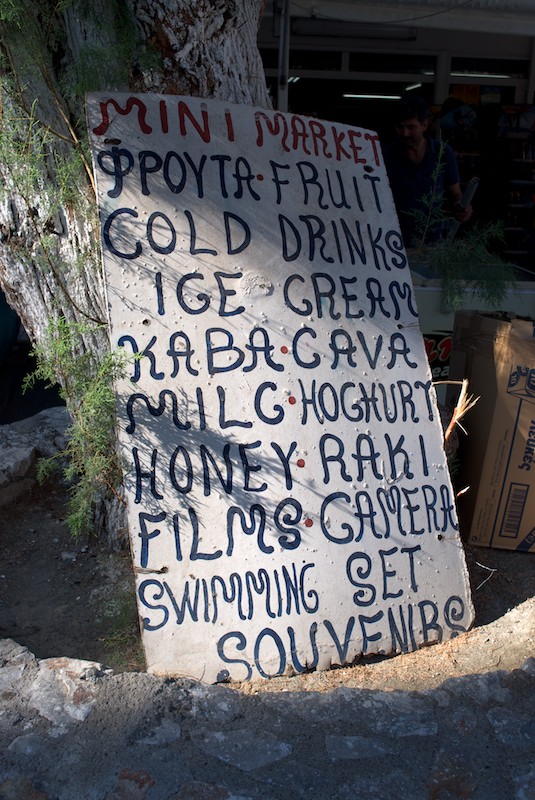 MINI MARKET
ΦΡΟΥΤΑ·FRUIT
COLD DRINKS
IGE CREAM
KABA·CAVA
MILC·HOGHURT
HONEY·RAKI
FILMS·CAMERA
SWIMMING SET
SOUVENIRS